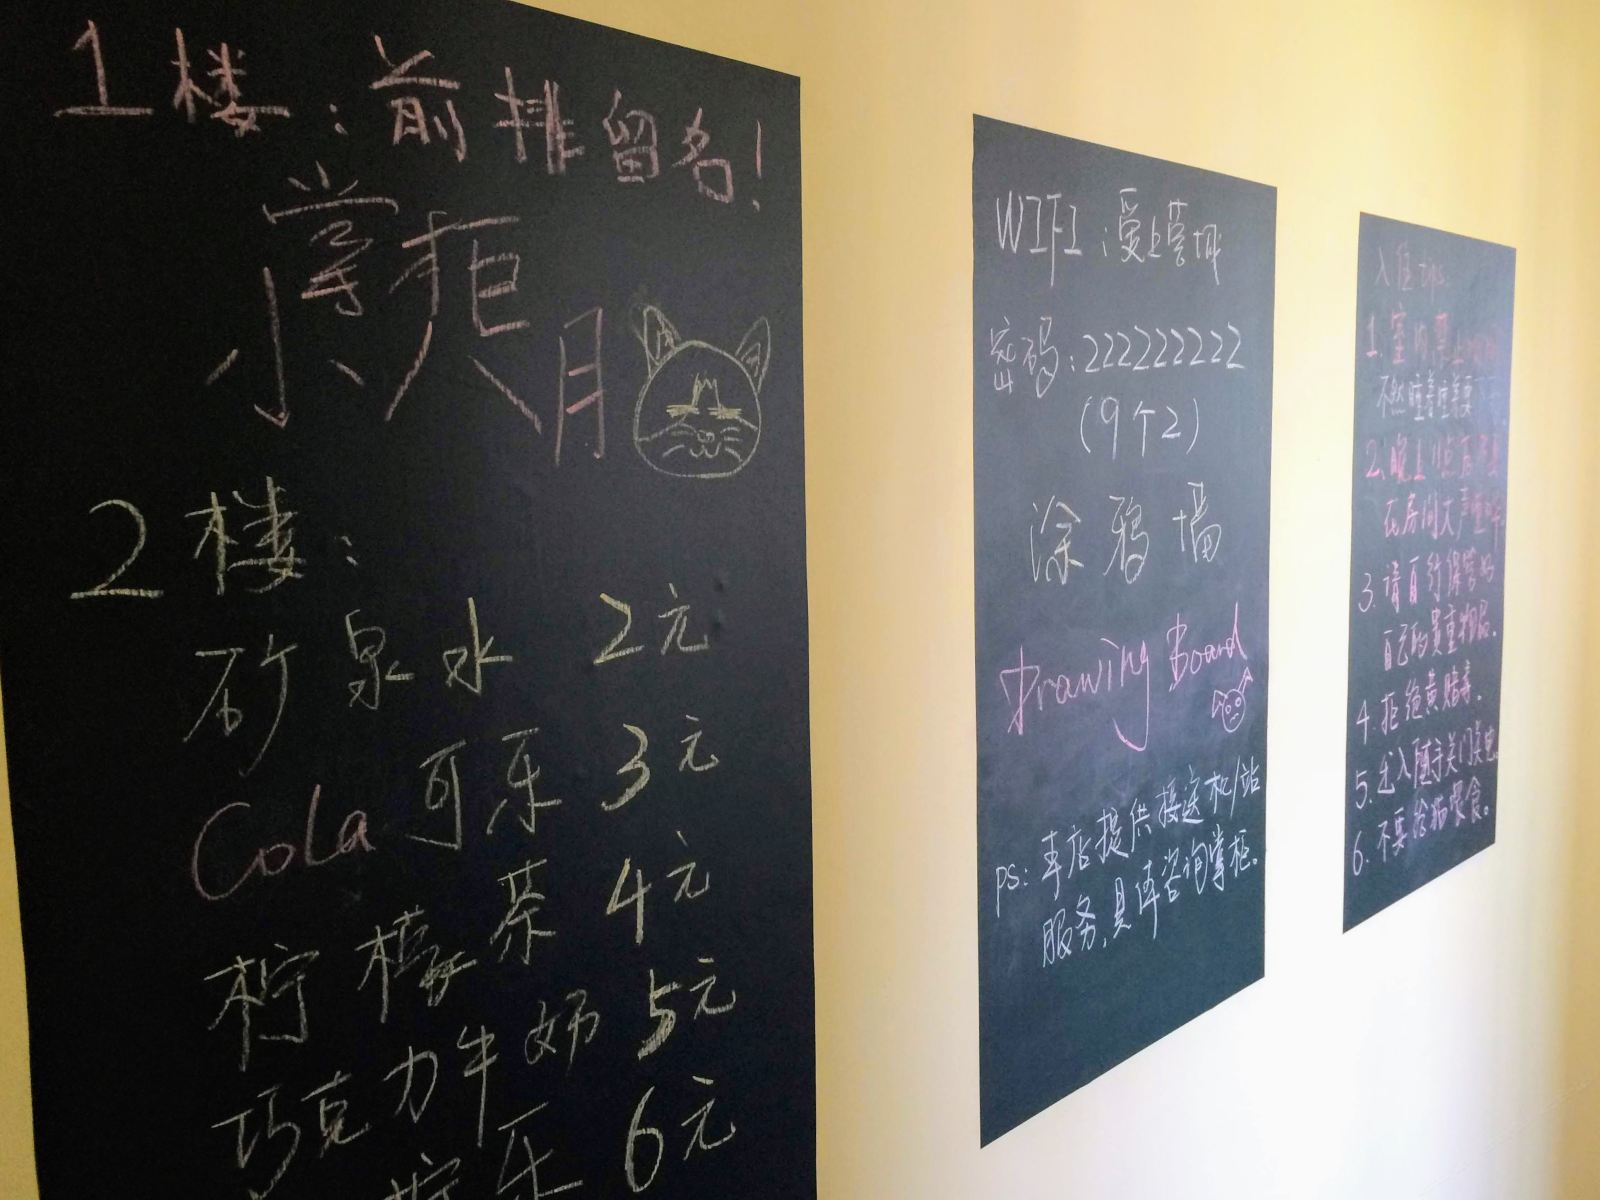 1楼：前排留名！
掌柜
小八月
2楼：
矿泉水 2元
Cola 可乐 3元
柠檬茶 4元
巧克力牛奶 5元
柠乐 6元
WIFI：爱上蓉城
密码：222222222
（9个2）
涂鸦墙
Drawing Board
PS：本店提供接送机/站
服务，具体咨询掌柜。
入住tips：
1.室内禁止
不然睡着睡着要
2.晚上11点后不要
在房间大声喧哗
3.请自行保管好
自己的贵重物品。
4.拒绝黄赌毒。
5.出入随手关门关电。
6.不要给猫喂食。